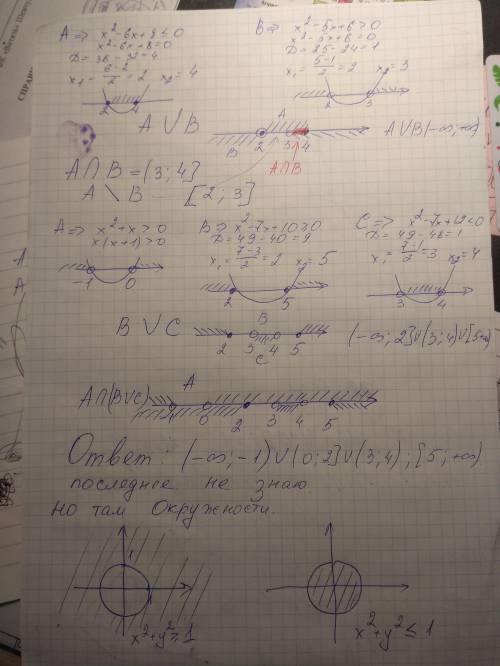 A => x²-6x+8≤0
x²-6x+8=0
D=36-32=4
x₁=(6-2)/2=2 x₂=4
2 4
B => x²-5x+6>0
x²-5x+6=0
D=25-24=1
x₁=(5-1)/2=2 x₂=3
2 3
A ∪ B
A
B 2 3 4
A∩B
A∪B(-∞;+∞)
A∩B=(3;4]
A \ B [2;3]
A => x²+x>0
x(x+1)>0
-1 0
B => x²-7x+10≥0
D=49-40=9
x₁=(7-3)/2=2 x₂=5
2 5
C => x²-7x+12<0
D=49-48=1
x₁=(7-1)/2=3 x₂=4
3 4
B ∪ C
B
2 3 4 5
C
(-∞;2]∪(3;4)∪[5;+∞)
A∩(B∪C)
A
-1 0 2 3 4 5
Ответ: (-∞;-1)∪(0;2]∪(3;4);[5;+∞)
последнее не знаю
но там окружности.
1
1
x²+y²≥1
x²+y²≤1